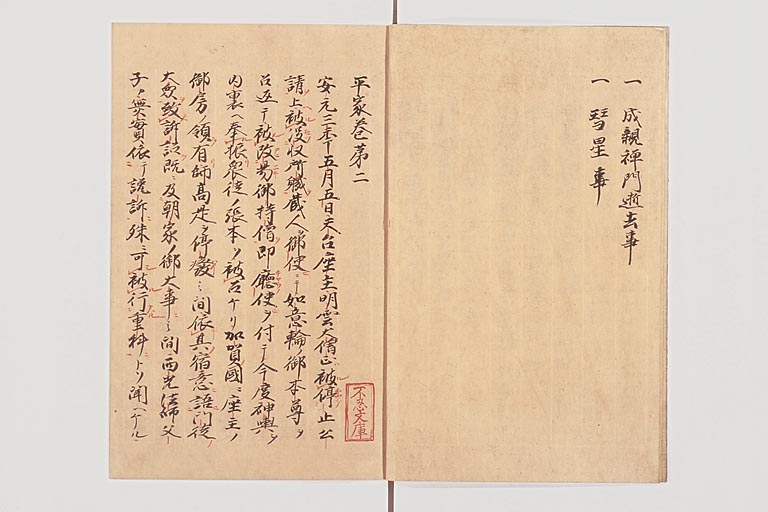 一 成親禅門逝去事
一 彗星事
平家巻第二
安元三年丁酉五月五日天台座主明雲大僧正被停止公
請上被没収所職蔵人御使ニテ如意輪御本尊ヲ
召返テ被改易御持僧即廳使ヲ付テ今度神輿ヲ
内裏ヘ奉振衆徒ノ張本ヲ被召ケリ加賀國ニ座主ノ
御房ノ領有師高是ヲ停廢之間依其宿意語門徒
大衆致訴訟既ニ及朝家ノ御大事之間西光法師父
子ノ無實依テ讒訴殊ニ可被行重科トソ聞ヘケル
不忍文庫